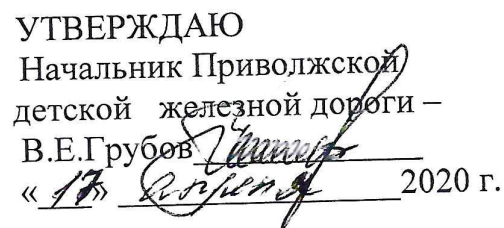 УТВЕРЖДАЮ
Начальник Приволжской
детской железной дороги –
В.Е.Грубов
«17» апреля 2020 г.